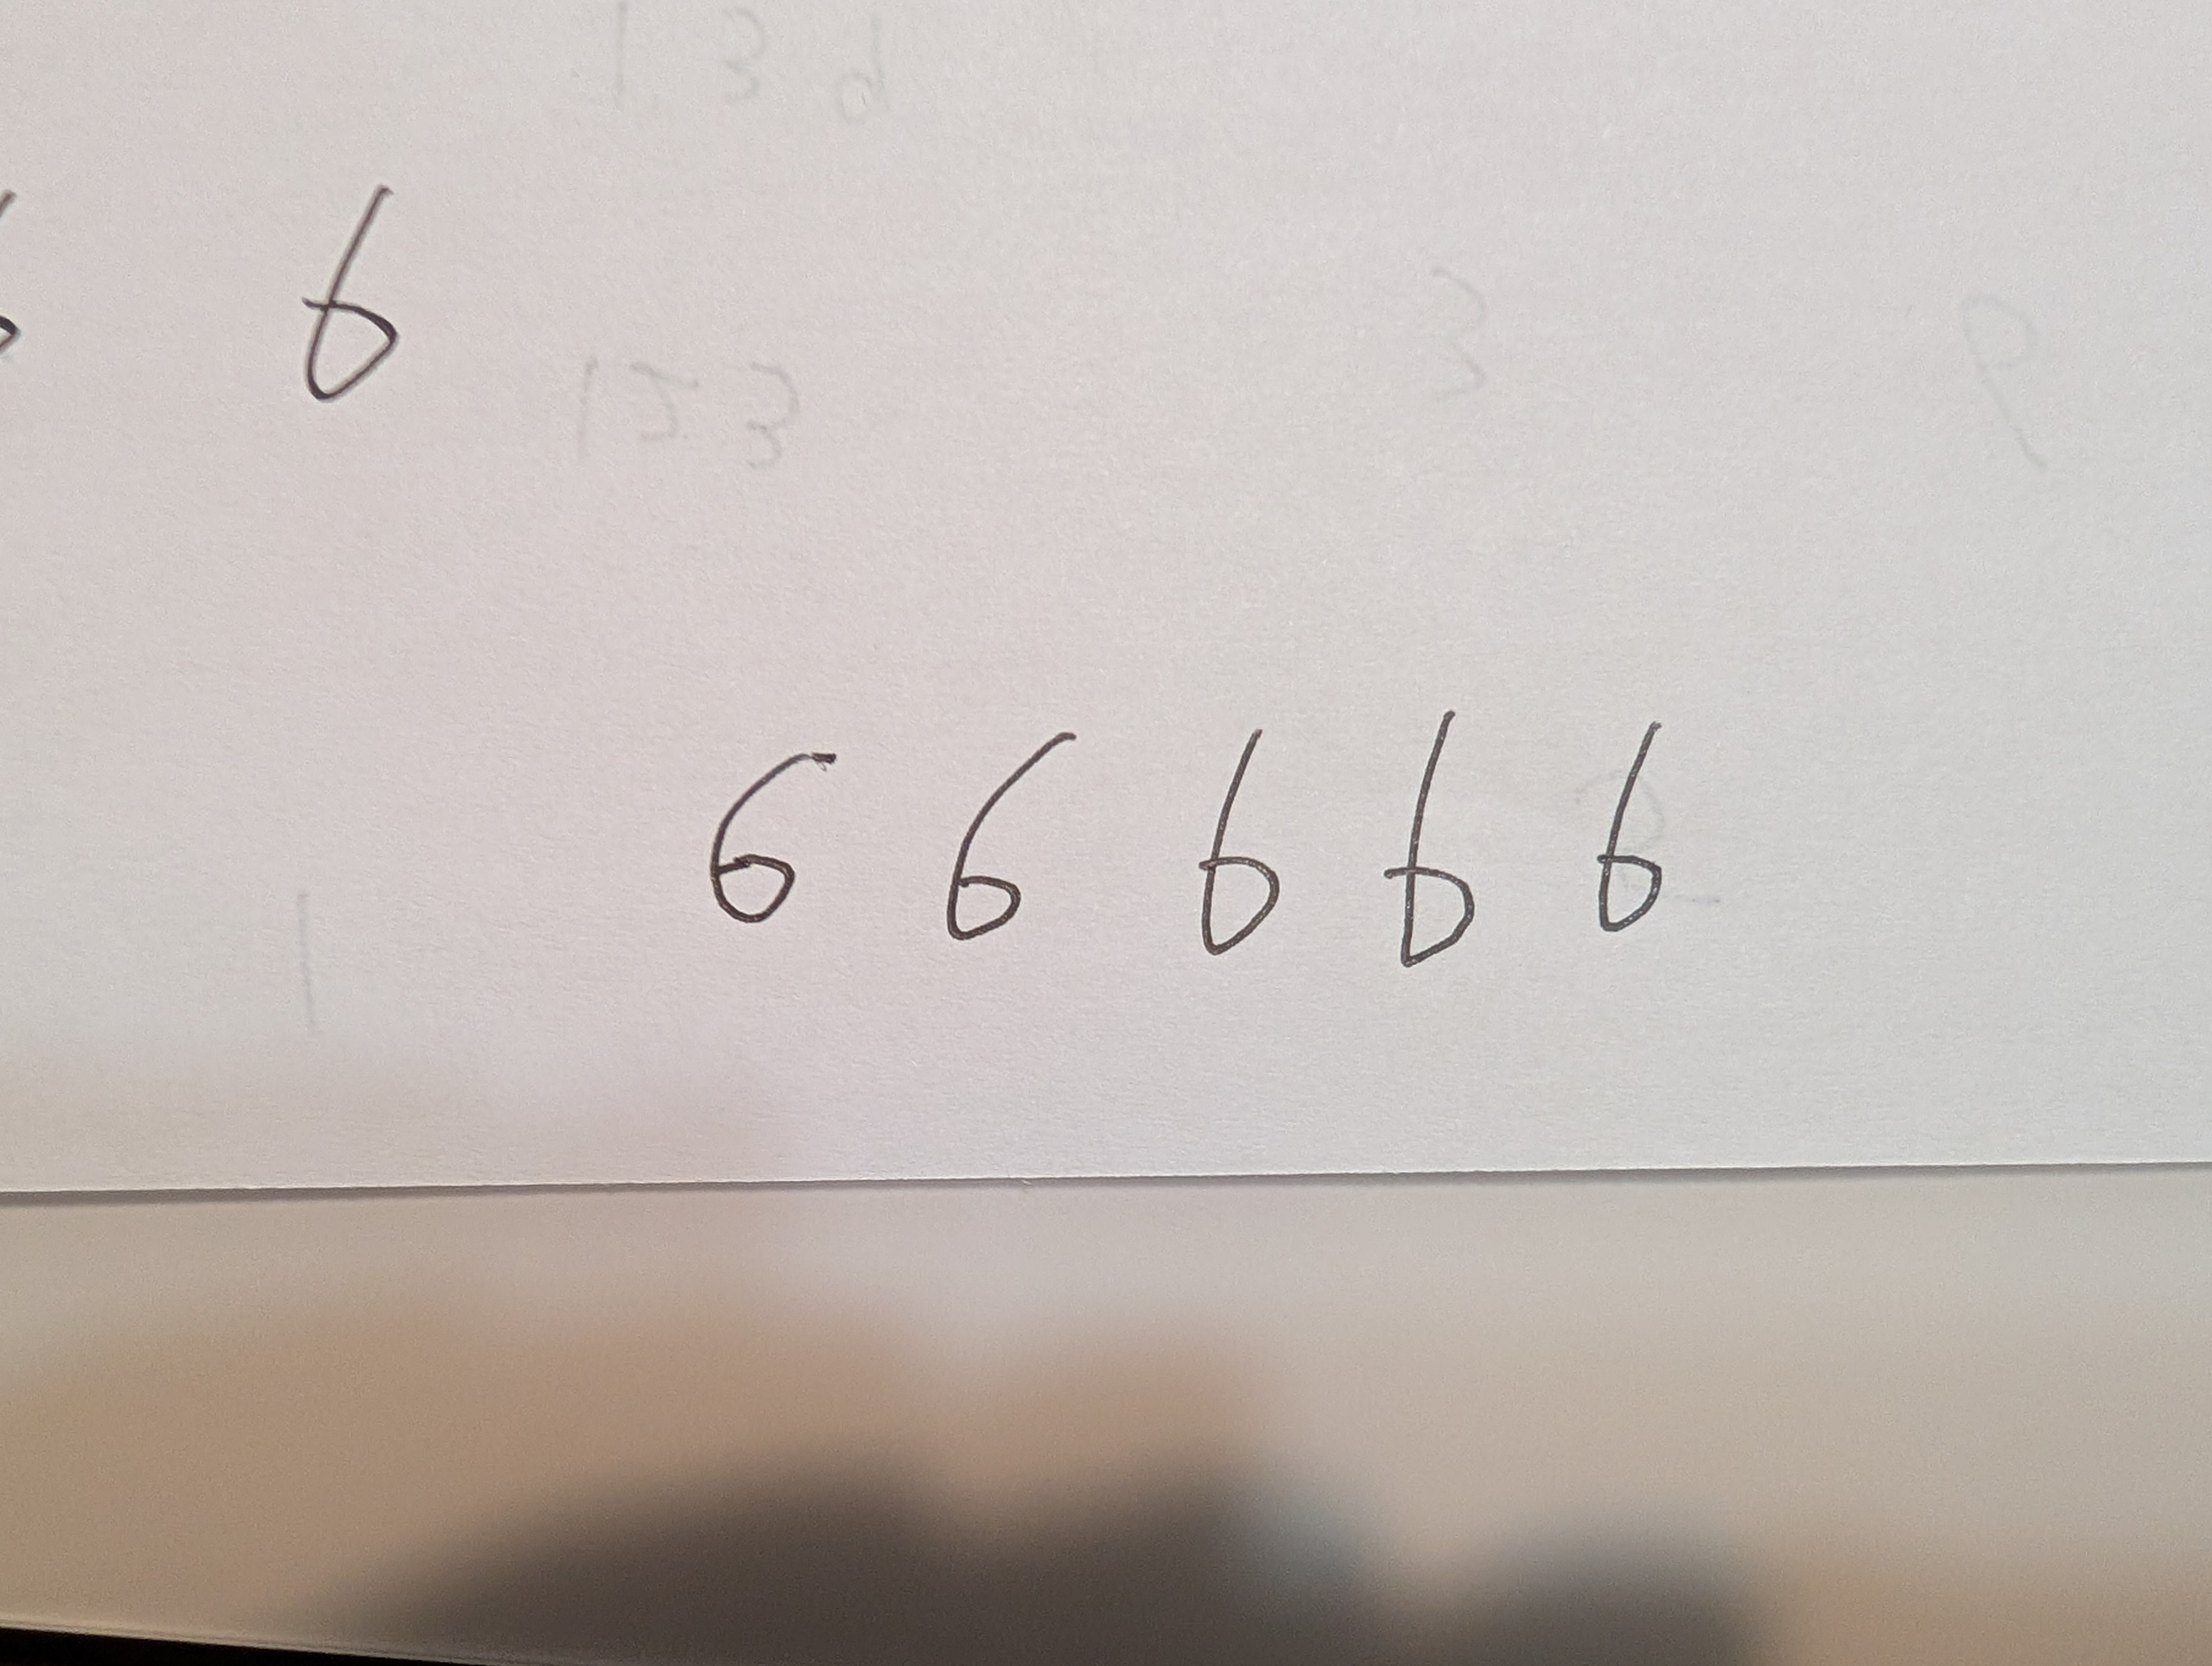 6
6 6 6 6 6